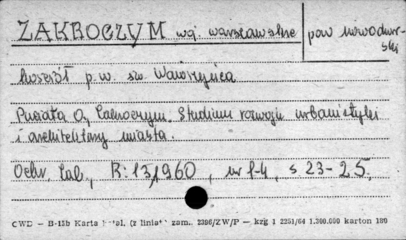 ZAKROCZYM woj. warszawskie
pow nowodwor-
ski
kościół p.w. św Wawrzyńca
Pusiata O, Zakroczym. Studium rozwoju urbanistyki
i architektury miasta.
Ochr. Zab., R: 13,1960, nr 1-4, s 23-25.
CWD — B-15b Karta (z liniat zam. 2206/ZW/P — kzg 1 2251/64 1.200.000 karton 180